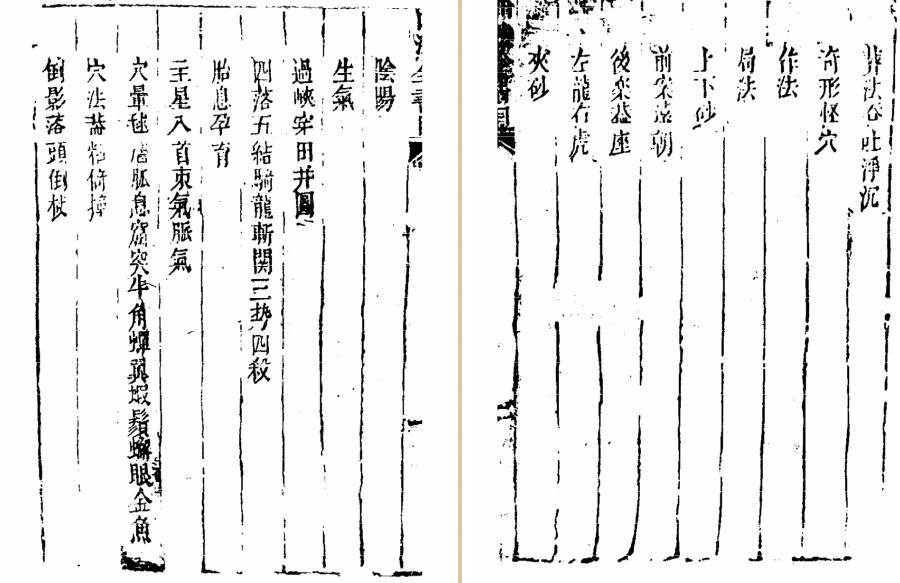 葬法吞吐浮沉
奇形怪穴
作法
局法
上下砂
前案遠朝
後楽恭座
左龍右虎
夾砂
陰陽
生氣
過峽穿田井圖
四落五結騎龍斬関三勢四殺
胎息孕育
主星入首束氣脈氣
穴暈毬簷脈息窟突牛角蟬翼蝦鬚蠏眼金魚
穴法蓋粘倚撞
倒影落頭倒杖